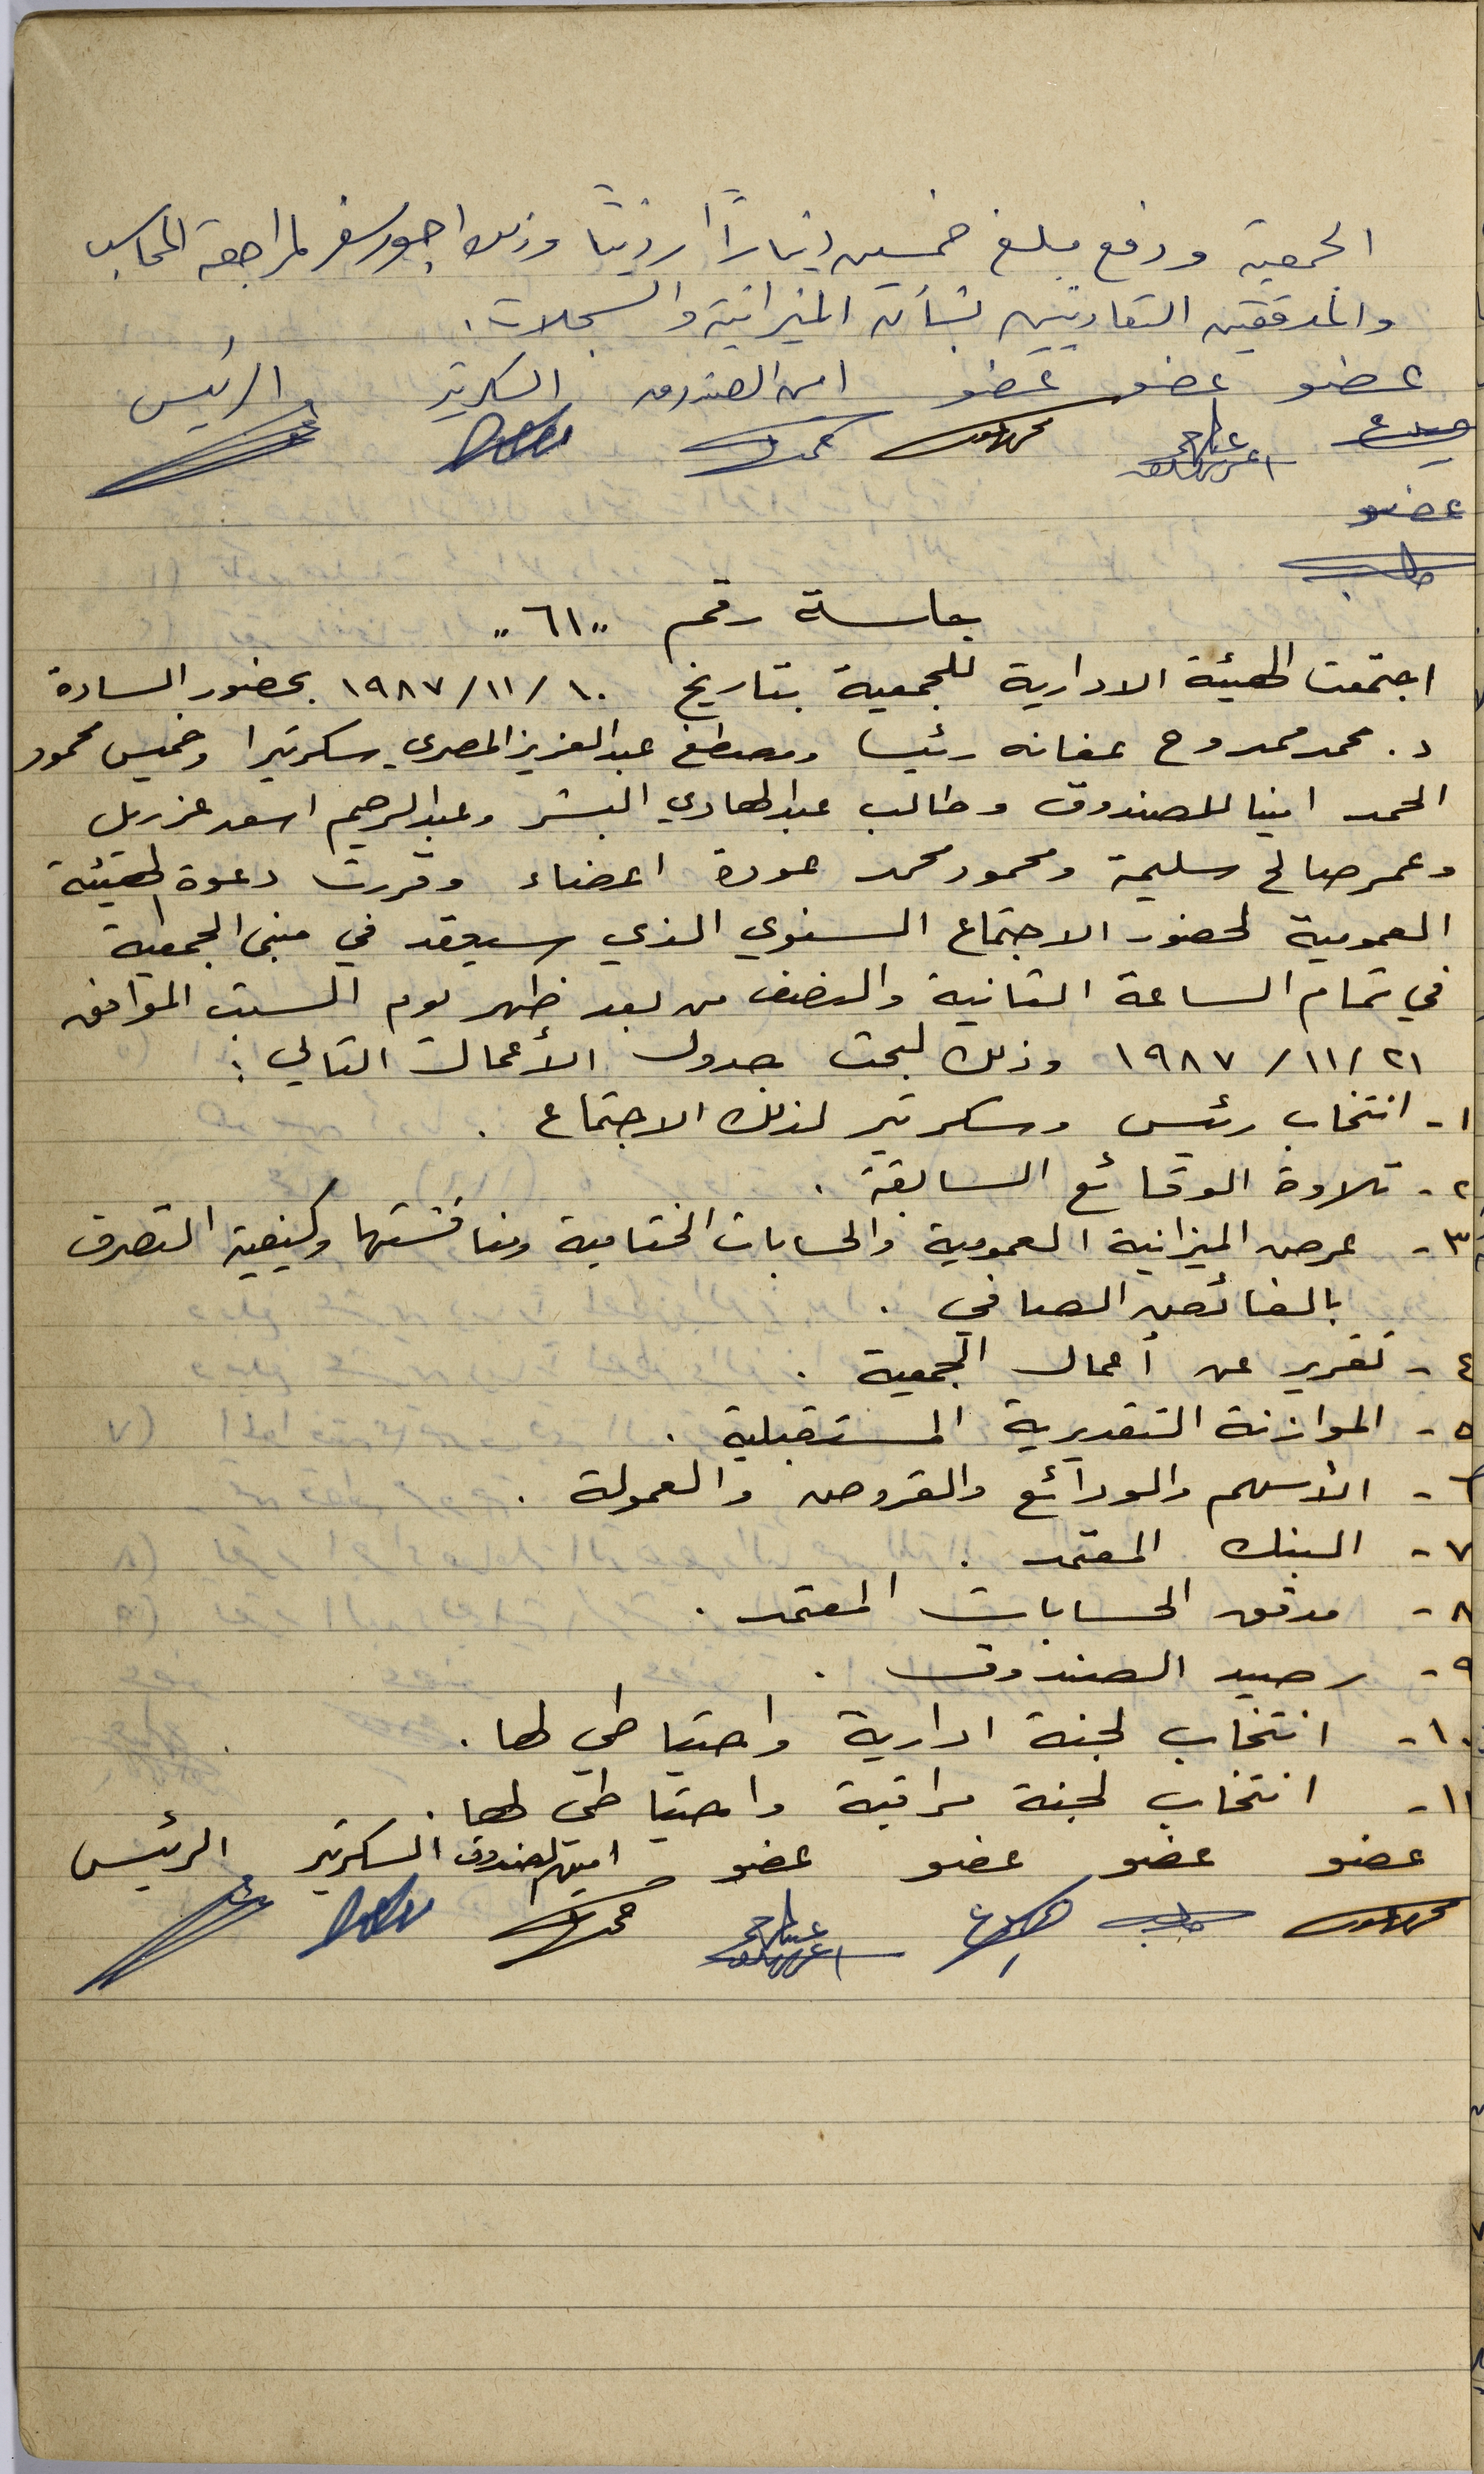 الجمعية ودفع مبلغ خمسين ديناراً اردنياً وذلك اجور سفر لمراجعة المحاسب
والمدققين التعاونيين بشأن الميزانية والسجلات.
عضو عضو عضو امين الصندوق السكرتير الرئيس
عضو
طالب
جلسة رقم "٦١"
اجتمعت الهيئة الادارية للجمعية بتاريخ ١٠/١١/١٩٨٧ بحضور السادة
د. محمد ممدوح عفانه رئيسا ومصطفى عبد العزيز المصري سكرتيرا وخميس محمود
الحمد امينا للصندوق وطالب عبد الهادي البشر وعبد الرحيم اسعد عزريل
وعمر صالح سليمة ومحمود محمد عودة اعضاء وقررت دعوة الهيئة
العمومية لحضور الاجتماع السنوي الذي سيعقد في مبنى الجمعية
في تمام الساعة الثانية والنصف من بعد ظهر يوم السبت الموافق
٢١/١١/١٩٨٧ وذلك لبحث جدول الأعمال التالي :
١- انتخاب رئيس وسكرتير لذلك الاجتماع .
٢- تلاوة الوقائع السابقة .
٣- عرض الميزانية العمومية والحسابات الختامية ومناقشتها وكيفية التصرف
بالفائض الصافي .
٤- تقرير عن أعمال الجمعية .
٥- الموازنة التقديرية المستقبلية .
٦- الأسهم والودائع والقروض والعمولة .
٧- البنك المعتمد .
٨- مدقق الحسابات المعتمد .
٩- رصيد الصندوق .
١٠- انتخاب لجنة ادارية واحتياطي لها .
١١- انتخاب لجنة مراقبة واحتياطي لها .
عضو عضو عضو عضو امين الصندوق السكرتير الرئيس
طالب